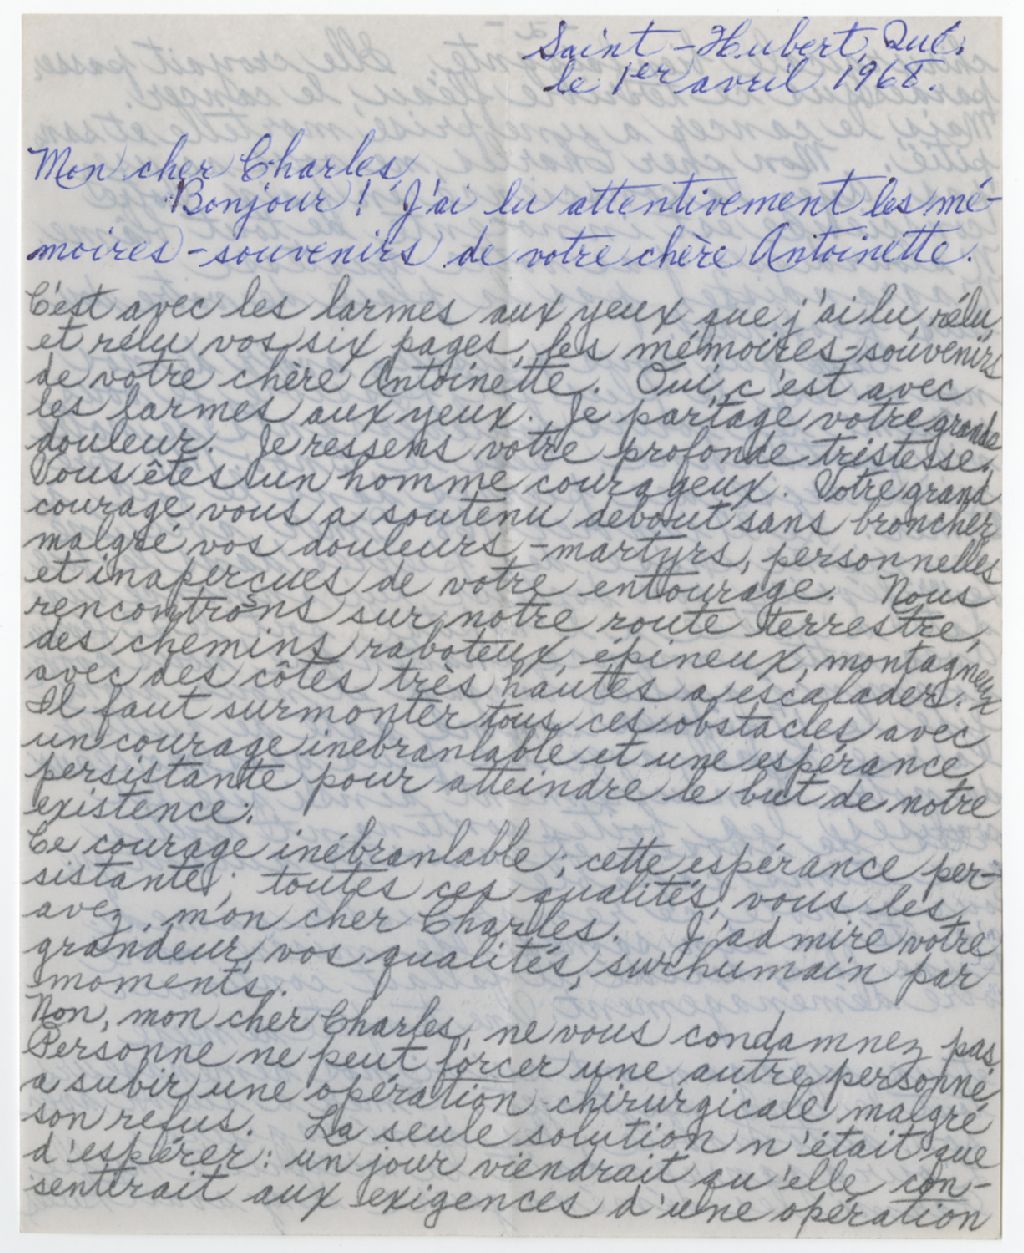 Saint-Hubert, Qué.
le 1er avril 1968.
Mon cher Charles,
Bonjour! J'ai lu attentivement les mé-
moires-souvenirs de votre chère Antoinette.
C'est avec les larmes aux yeux que j'ai lu, rélu
et rélu vos six pages, les mémoires-souvenirs
de votre chère Antoinette. Oui, c'est avec
les larmes aux yeux. Je partage votre grande
douleur. Je ressens votre profonde tristesse.
Vous êtes un homme courageux. Votre grand
courage vous a soutenu debout sans broncher
malgré vos douleurs,-martyrs, personnelles
et inaperçues de votre entourage. Nous
rencontrons sur notre route terrestre,
des chemins raboteux, épineux, montagneux
avec des côtes très hautes a escalader.
Il faut surmonter tous ces obstacles avec
un courage inébranlable et une espérance
persistante pour atteindre le but de notre
existence.
Ce courage inébranlable; cette espérance per-
sistante; toutes ces qualités, vous les
avez, mon cher Charles. J'admire votre
grandeur, vos qualités, surhumain par
moments.
Non, mon cher Charles, ne vous condamnez pas.
Personne ne peut forcer une autre personne
a subir une opération chirurgicale malgré
son refus. La seule solution n'était que
d'espérer: un jour viendrait qu'elle con-
sentirait aux exigences d'une opération